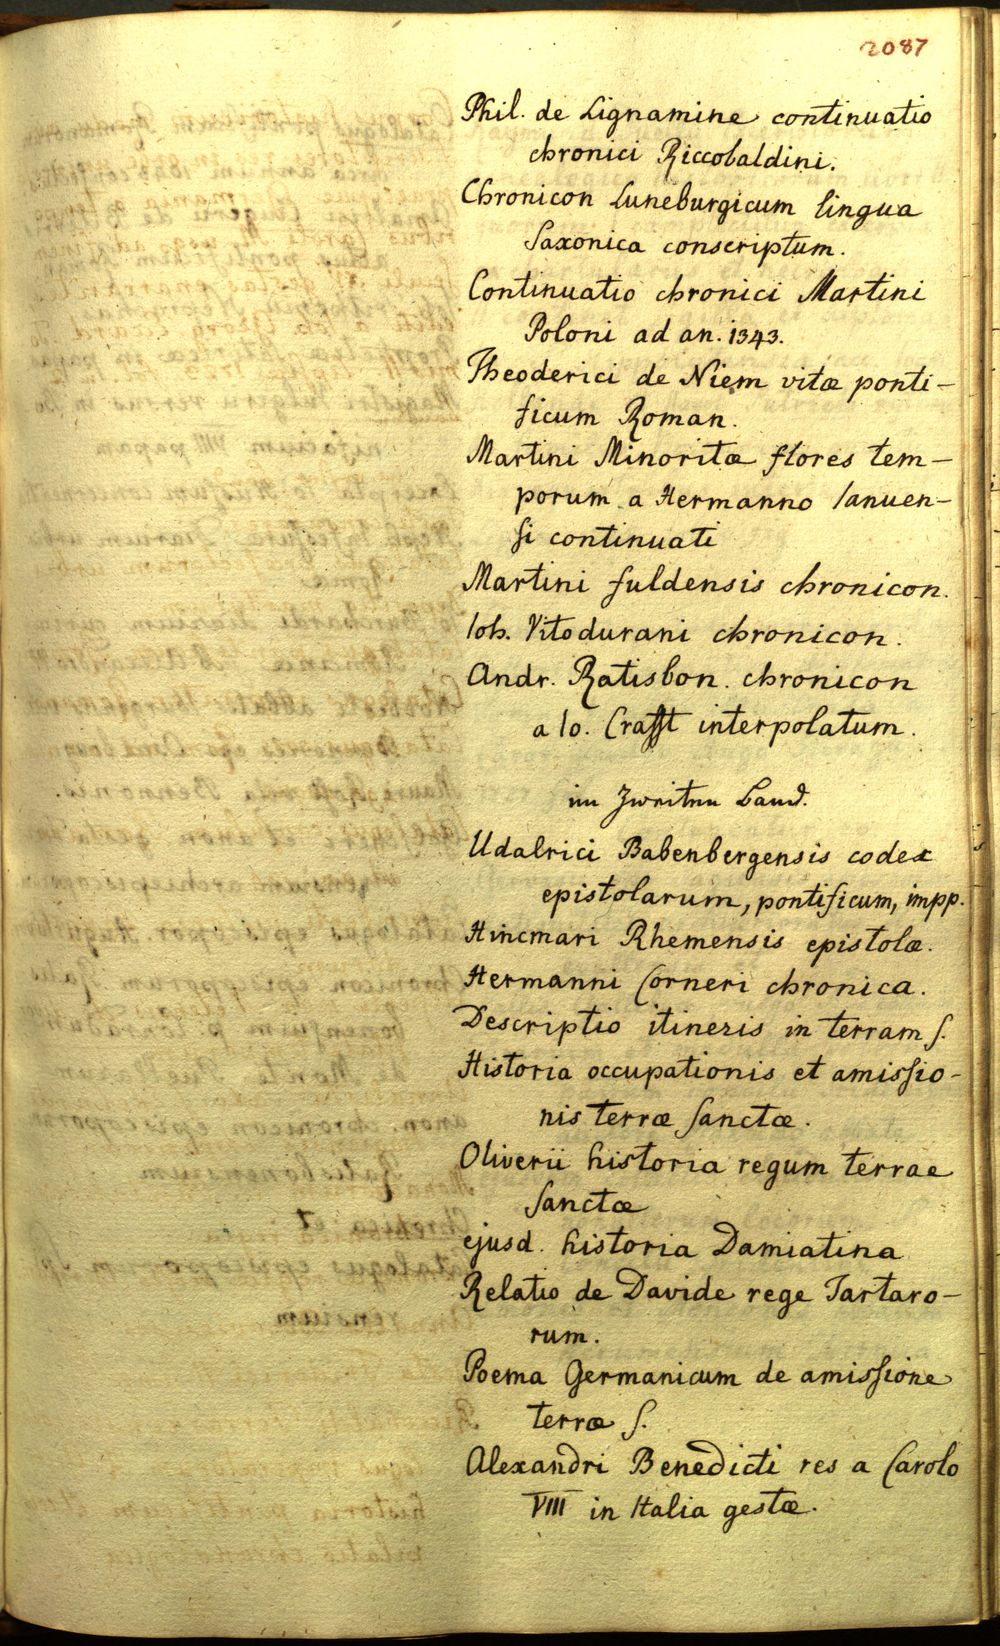 2087
Phil. de Lignamine continuatio
chronici Riccobaldini.
Chronicon Luneburgicum lingua
Saxonica conscriptum.
Continuatio chronici Martini
Poloni ad an. 1343.
Theoderici de Niem vitæ ponti-
ficum Roman.
Martini Minoritæ flores tem-
porum a Hermanno Ianuen-
si continuati
Martini fuldensis chronicon.
Ioh. Vitodurani chronicon.
Andr. Ratisbon. chronicon
a Io. Crafft interpolatum.
im Zweiten Band.
Udalrici Babenbergensis codex
epistolarum, pontificum, impp.
Hincmari Rhemensis epistolæ.
Hermanni Corneri chronica.
Descriptio itineris in terram S.
Historia occupationis et amissio-
nis terræ Sanctæ.
Oliverii historia regum terrae
Sanctæ
ejusd. historia Damiatina
Relatio de Davide rege Tartaro-
rum.
Poema Germanicum de amissione
terræ S.
Alexandri Benedicti res a Carolo
VIII in Italia gestæ.